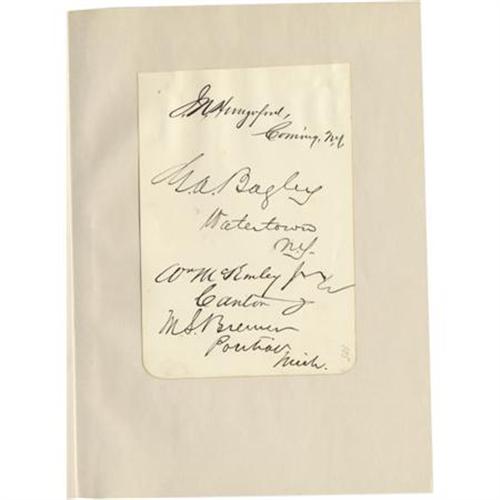 J.N. Hungerford,
Corning, N.Y.
G.A. Bagley
Watertown
N.Y.
Wm McKinley Jr
Canton O
M.S. Brewer
Pontiac
Mich.